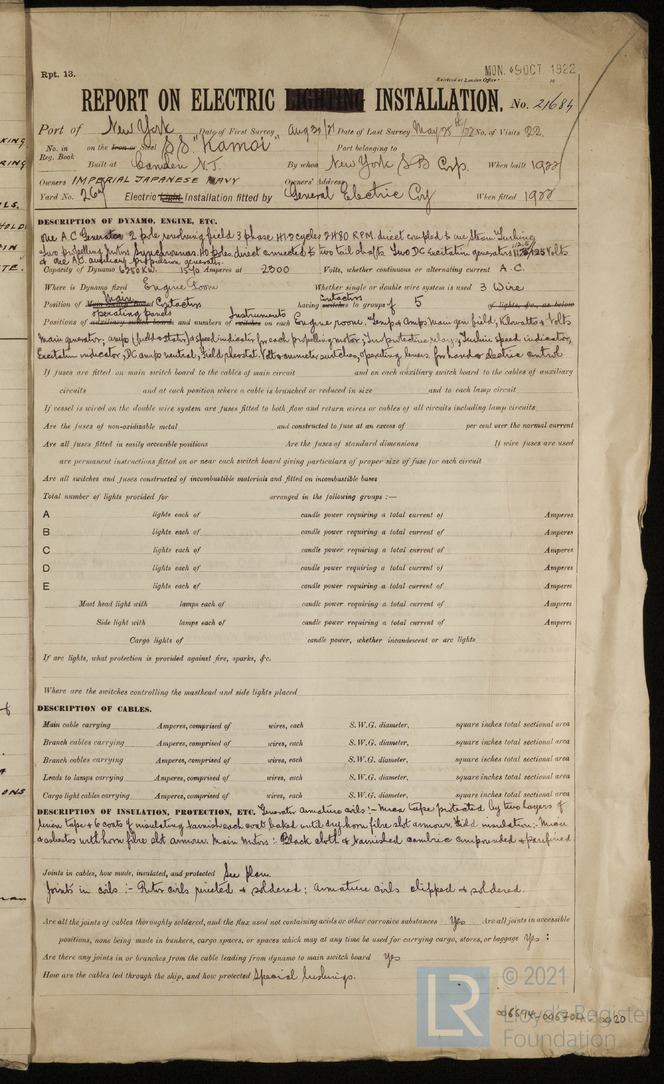 Rpt. 13.
MON. 9 OCT 1922
Received at London Office
REPORT ON ELECTRIC LIGHTING INSTALLATION. No. 21684
Port of New York Date of First Survey Aug 30/21 Date of Last Survey May 25th/22 No. of Visits 22
No. in Reg. Book on the Iron or Steel SS "Kamoi" Port belonging to
Built at Camden N.J. By whom New York S B Corp. When built 1922
Owners IMPERIAL JAPANESE NAVY Owners' Address
Yard No. 267 Electric Light Installation fitted by General Electric Coy When fitted 1922
DESCRIPTION OF DYNAMO, ENGINE, ETC.
One A.C. Generator 2 pole revolving field 3 phase cycles 2480 R.P.M. direct coupled to one Steam Turbine
Two propelling motors Synchronous 40 poles direct connected to two tail shafts Two DC Excitation generators 125 Volts
Capacity of Dynamo 6250 KW. 1570 Amperes at 2300 Volts, whether continuous or alternating current A.C.
Where is Dynamo fixed Engine Room Whether single or double wire system is used 3 Wire
Position of Main Switch Board Contactors having switches to groups Contactors of 5 of lights, &c., as below
Positions of auxiliary switch boards operating panels and numbers of switches Instruments on each Engine room. Temp & Amps Main gen field, Kilowatts & Volts
Main generator; amps (field & stator) & speed indicator for each propelling motor; protective relay; Turbine speed indicator,
Excitation indicator; DC amp neutral; field rheostat. Voltammeter switches; operating levers for hand or electric control
If fuses are fitted on main switch board to the cables of main circuit and on each auxiliary switch board to the cables of auxiliary
circuits and at each position where a cable is branched or reduced in size and to each lamp circuit
If vessel is wired on the double wire system are fuses fitted to both flow and return wires or cables of all circuits including lamp circuits
Are the fuses of non-oxidizable metal and constructed to fuse at an excess of per cent over the normal current
Are all fuses fitted in easily accessible positions Are the fuses of standard dimensions If wire fuses are used
are permanent instructions fitted on or near each switch board giving particulars of proper size of fuse for each circuit
Are all switches and fuses constructed of incombustible materials and fitted on incombustible bases
Total number of lights provided for arranged in the following groups :—
A lights each of candle power requiring a total current of Amperes
B lights each of candle power requiring a total current of Amperes
C lights each of candle power requiring a total current of Amperes
D lights each of candle power requiring a total current of Amperes
E lights each of candle power requiring a total current of Amperes
Mast head light with lamps each of candle power requiring a total current of Amperes
Side light with lamps each of candle power requiring a total current of Amperes
Cargo lights of candle power, whether incandescent or arc lights
If arc lights, what protection is provided against fire, sparks, &c.
Where are the switches controlling the masthead and side lights placed
DESCRIPTION OF CABLES.
Main cable carrying Amperes, comprised of wires, each S.W.G. diameter, square inches total sectional area
Branch cables carrying Amperes, comprised of wires, each S.W.G. diameter, square inches total sectional area
Branch cables carrying Amperes, comprised of wires, each S.W.G. diameter, square inches total sectional area
Leads to lamps carrying Amperes, comprised of wires, each S.W.G. diameter, square inches total sectional area
Cargo light cables carrying Amperes, comprised of wires, each S.W.G. diameter, square inches total sectional area
DESCRIPTION OF INSULATION, PROTECTION, ETC. Generator Armature coils :- Mica tape protected by two layers of
linen tape & 6 coats of insulating varnish each coat baked until dry horn fibre slot armour. Field insulation:- Mica
& asbestos with horn fibre slot armour. Main Motors : Black cloth & varnished cambric compounded & paraffined
Joints in cables, how made, insulated, and protected See plan
Joints in coils :- Rotor coils riveted & soldered; Armature coils clipped & soldered.
Are all the joints of cables thoroughly soldered, and the flux used not containing acids or other corrosive substances Yes Are all joints in accessible
positions, none being made in bunkers, cargo spaces, or spaces which may at any time be used for carrying cargo, stores, or baggage Yes :
Are there any joints in or branches from the cable leading from dynamo to main switch board Yes
How are the cables led through the ship, and how protected Special bushings.
LR © 2021
Lloyd's Register
Foundation
006694-006704-0020